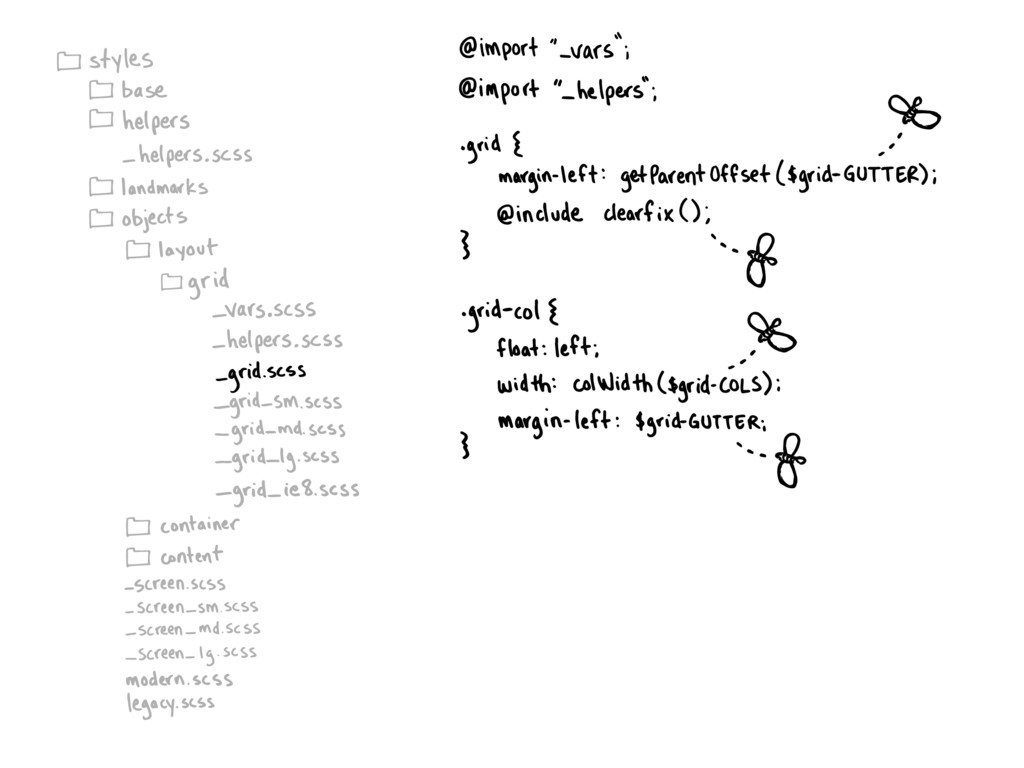 styles
base
helpers
_helpers.scss
landmarks
objects
layout
grid
_vars.scss
_helpers.scss
_grid.scss
_grid_sm.scss
_grid_md.scss
_grid_lg.scss
_grid_ie8.scss
container
content
_screen.scss
_screen_sm.scss
_screen_md.scss
_screen_lg.scss
modern.scss
legacy.scss
@import "_vars";
@import "_helpers";
.grid {
margin-left: getParentOffset($grid-GUTTER);
@include clearfix();
}
.grid-col {
float: left;
width: colWidth($grid-COLS);
margin-left: $grid-GUTTER;
}